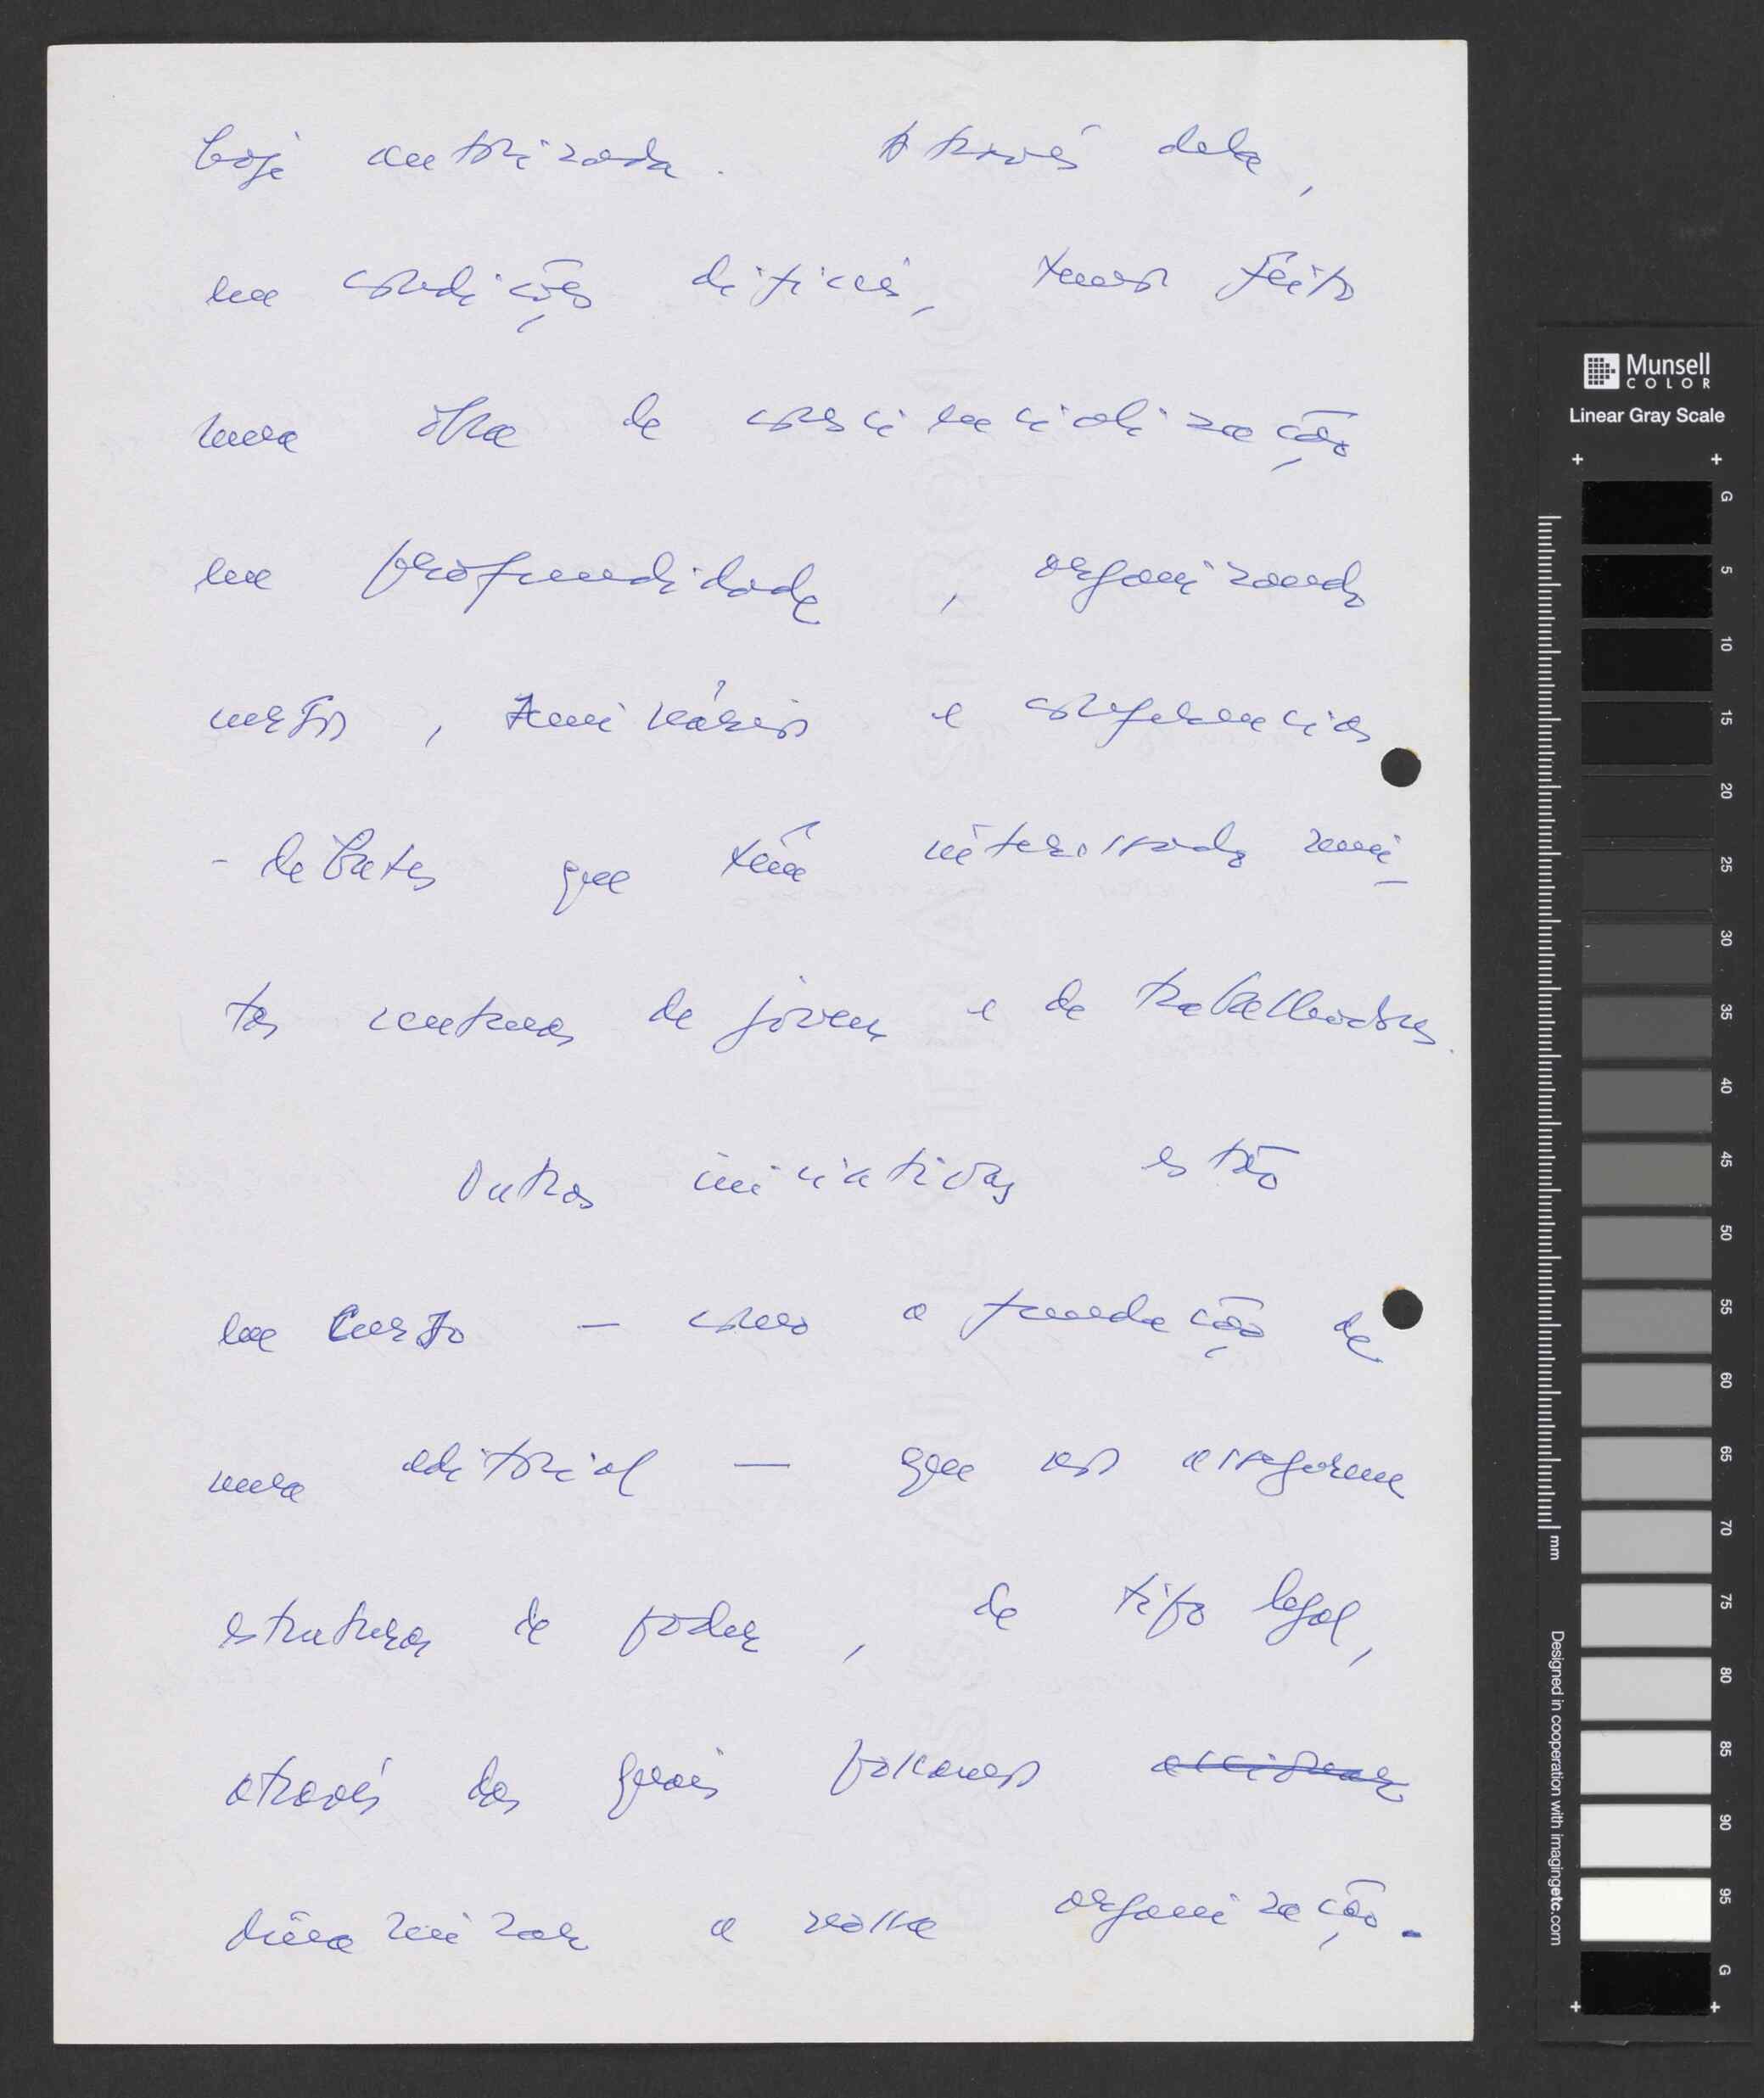 hoje autorizada. Através dela,
em condições difíceis, temos feito
uma obra de consciencialização
em profundidade, organizando
cursos, seminários e conferencias
- debates que têm interessado mui-
tas centenas de jovens e de trabalhadores.
Outras iniciativas estão
em curso — como a fundação de
uma editorial — que nos assegurem
estruturas de poder, de tipo legal,
através das quais possamos
dinamizar a nossa organização.
Munsell
COLOR
Linear Gray Scale
G
5
10
15
20
25
30
35
40
45
50
55
60
65
70
75
80
85
90
95
G
mm
Designed in cooperation with imagingetc.com